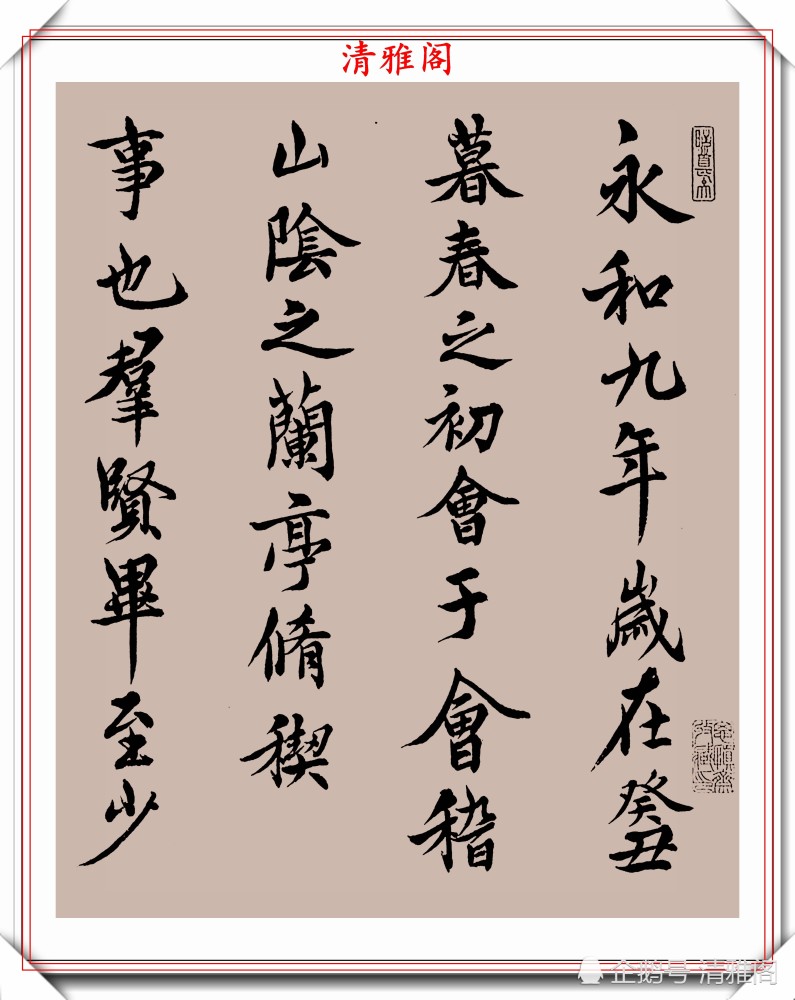 清雅阁
永和九年歲在癸丑
暮春之初會于會稽
山陰之蘭亭脩稧
事也羣賢畢至少
企鹅号 清雅阁